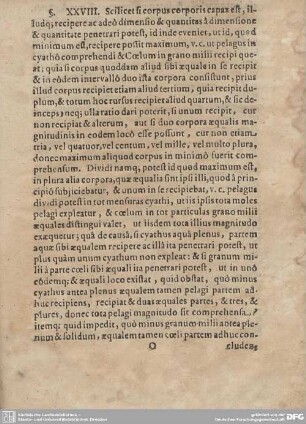 §. XXVIII. Scilicet si corpus corporis capax est, il-
lud; recipere ac adeò dimensio & quantitas à dimensione
& quantitate penetrari potest, id inde eveniet, ut id, quod
minimum est, recipere possit maximum, v. c. ut pelagus in
cyathô comprehendi & Cœlum in grano milii recipi que-
at: quia si corpus quoddam aliud sibi æquale in se recipit
& in eôdem intervallô duo ista corpora consistunt, prius
illud corpus recipiet etiam aliud tertium, quia recipit du-
plum, & totum hoc rursus recipiet aliud quartum, & sic de-
inceps; neq; ulla ratio dari poterit, si unum recipit, cur
non recipiat & alterum, aut si duo corpora æqualis ma-
gnitudinis in eodem locô esse possunt, cur non etiam
tria, vel quatuor, vel centum, vel mille, vel multo plura,
donec maximum aliquod corpus in minimô fuerit com-
prehensum. Dividi namq; potest id quod maximum est,
in plura alia corpora, quæ æqualia sint ipsi illi, quod à prin-
cipiô subjiciebatur, & unum in se recipiebat, v. c. pelagus
dividi potest in tot mensuras cyathi, ut iis ipsis tota moles
pelagi expleatur, & cœlum in tot particulas grano milii
æquales distingui valet, ut iisdem tota illius moles
exæquetur; quâ de causâ, si cyathus aquâ plenus, partem
aquæ sibi æqualem recipere ac illâ ita penetrari potest, ut
plus quàm unum cyathum non expleat: & si granum mi-
lii à parte cœli sibi æquali ita penetrari potest, ut in unô
eôdemq; & æquali loco existat, quid obstat, quò minus
cyathus antea plenus æqualem tamen pelagi partem ad-
huc recipiens, recipiat & duas æquales partes, & tres, &
plures, donec tota pelagi magnitudo sit comprehensa.
itemq; quid impedit, quò minus granum milii antea ple-
num & solidum, æqualem tamen cœli partem adhuc con-
O cluden-